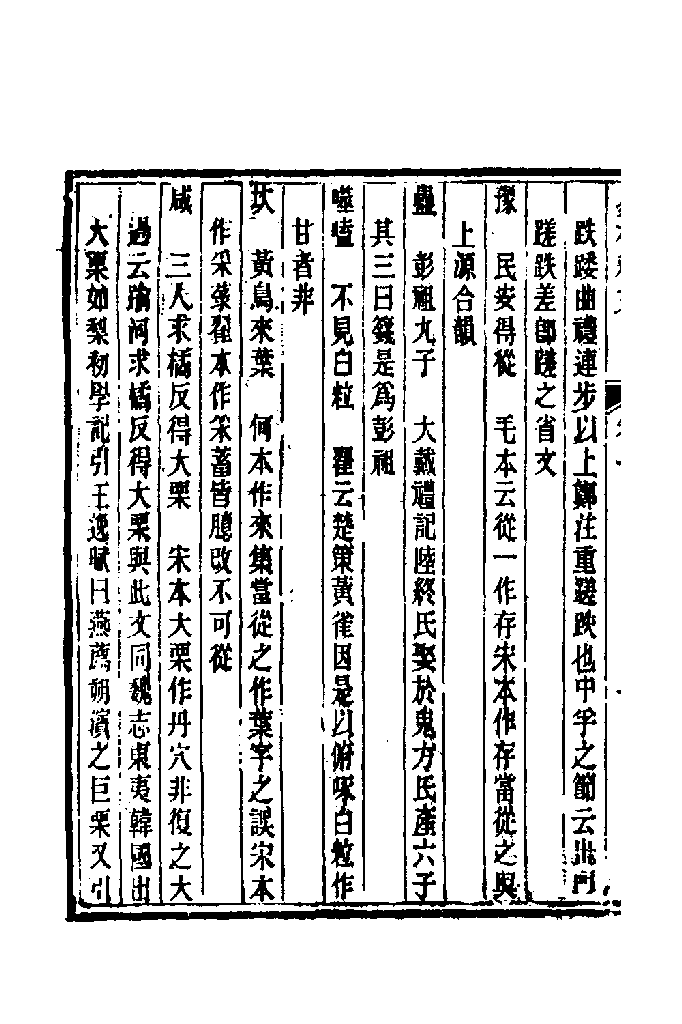 跌踒曲禮連步以上鄭注重蹉跌也中孚之節云出門
蹉跌差卽蹉之省文
豫　民安得從　毛本云從一作存宋本作存當從之與
上源合韻
蠱　彭祖九子　大戴禮記陸終氏娶於鬼方氏產六子
其三曰籛是爲彭祖
噬嗑　不見白粒　翟云楚策黃雀因是以俯啄白粒作
甘者非
坎　黃鳥來葉　何本作來集當從之作葉字之誤宋本
作采蓘翟本作采蓄皆臆改不可從
咸　三人求橘反得大栗　宋本大栗作丹穴非復之大
過云踰河求橘反得大栗與此文同魏志東夷韓國出
大栗如梨初學記引王逸賦曰燕薦朔濱之巨栗又引